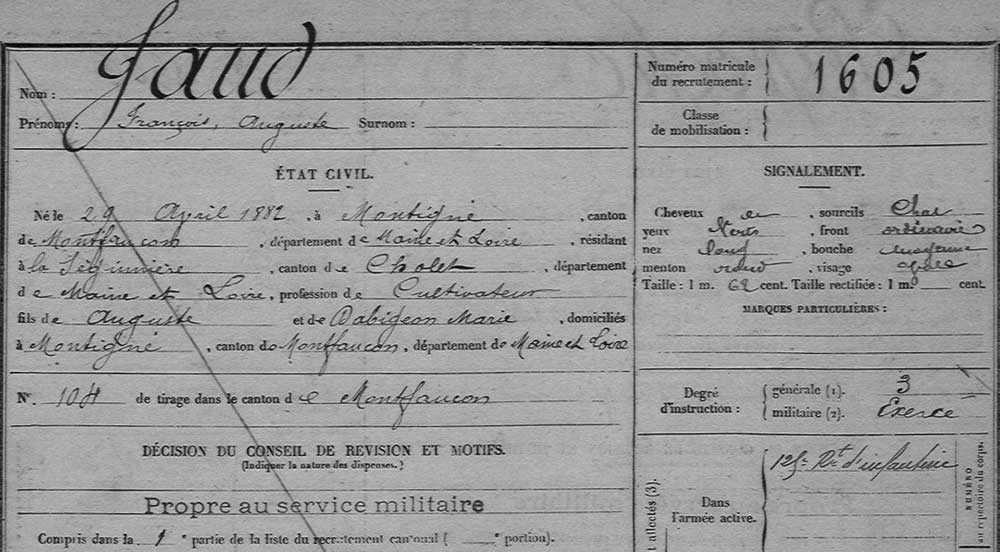 Nom : Gaud
Prénoms : François, Auguste Surnom :
ÉTAT CIVIL.
Né le 29 April 1882, à Montigné, canton
de Montfaucon, département de Maine et Loire, résidant
à la Séguinière, canton de Cholet, département
de Maine et Loire, profession de Cultivateur
fils de Auguste et de Dabigeon Marie, domiciliés
à Montigné, canton de Montfaucon, département de Maine et Loire
N°. 104 de tirage dans le canton de Montfaucon
DÉCISION DU CONSEIL DE REVISION ET MOTIFS.
(Indiquer la nature des dispenses.)
Propre au service militaire
Compris dans la 1e partie de la liste du recrutement cantonal ( e portion).
Numéro matricule
du recrutement : 1605
Classe
de mobilisation :
SIGNALEMENT.
Cheveux et, sourcils Chat
yeux Verts, front ordinaire
nez long, bouche moyenne
menton rond, visage ovale
Taille : 1 m. 62 cent. Taille rectifiée : 1 m. cent.
MARQUES PARTICULIÈRES :
Degré
d'instruction :
générale (1). 3
militaire (2). Exercé
t affectés (3).
Dans
l'armée active.
125e Rt d'infanterie
NUMÉRO
au répertoire du corps.